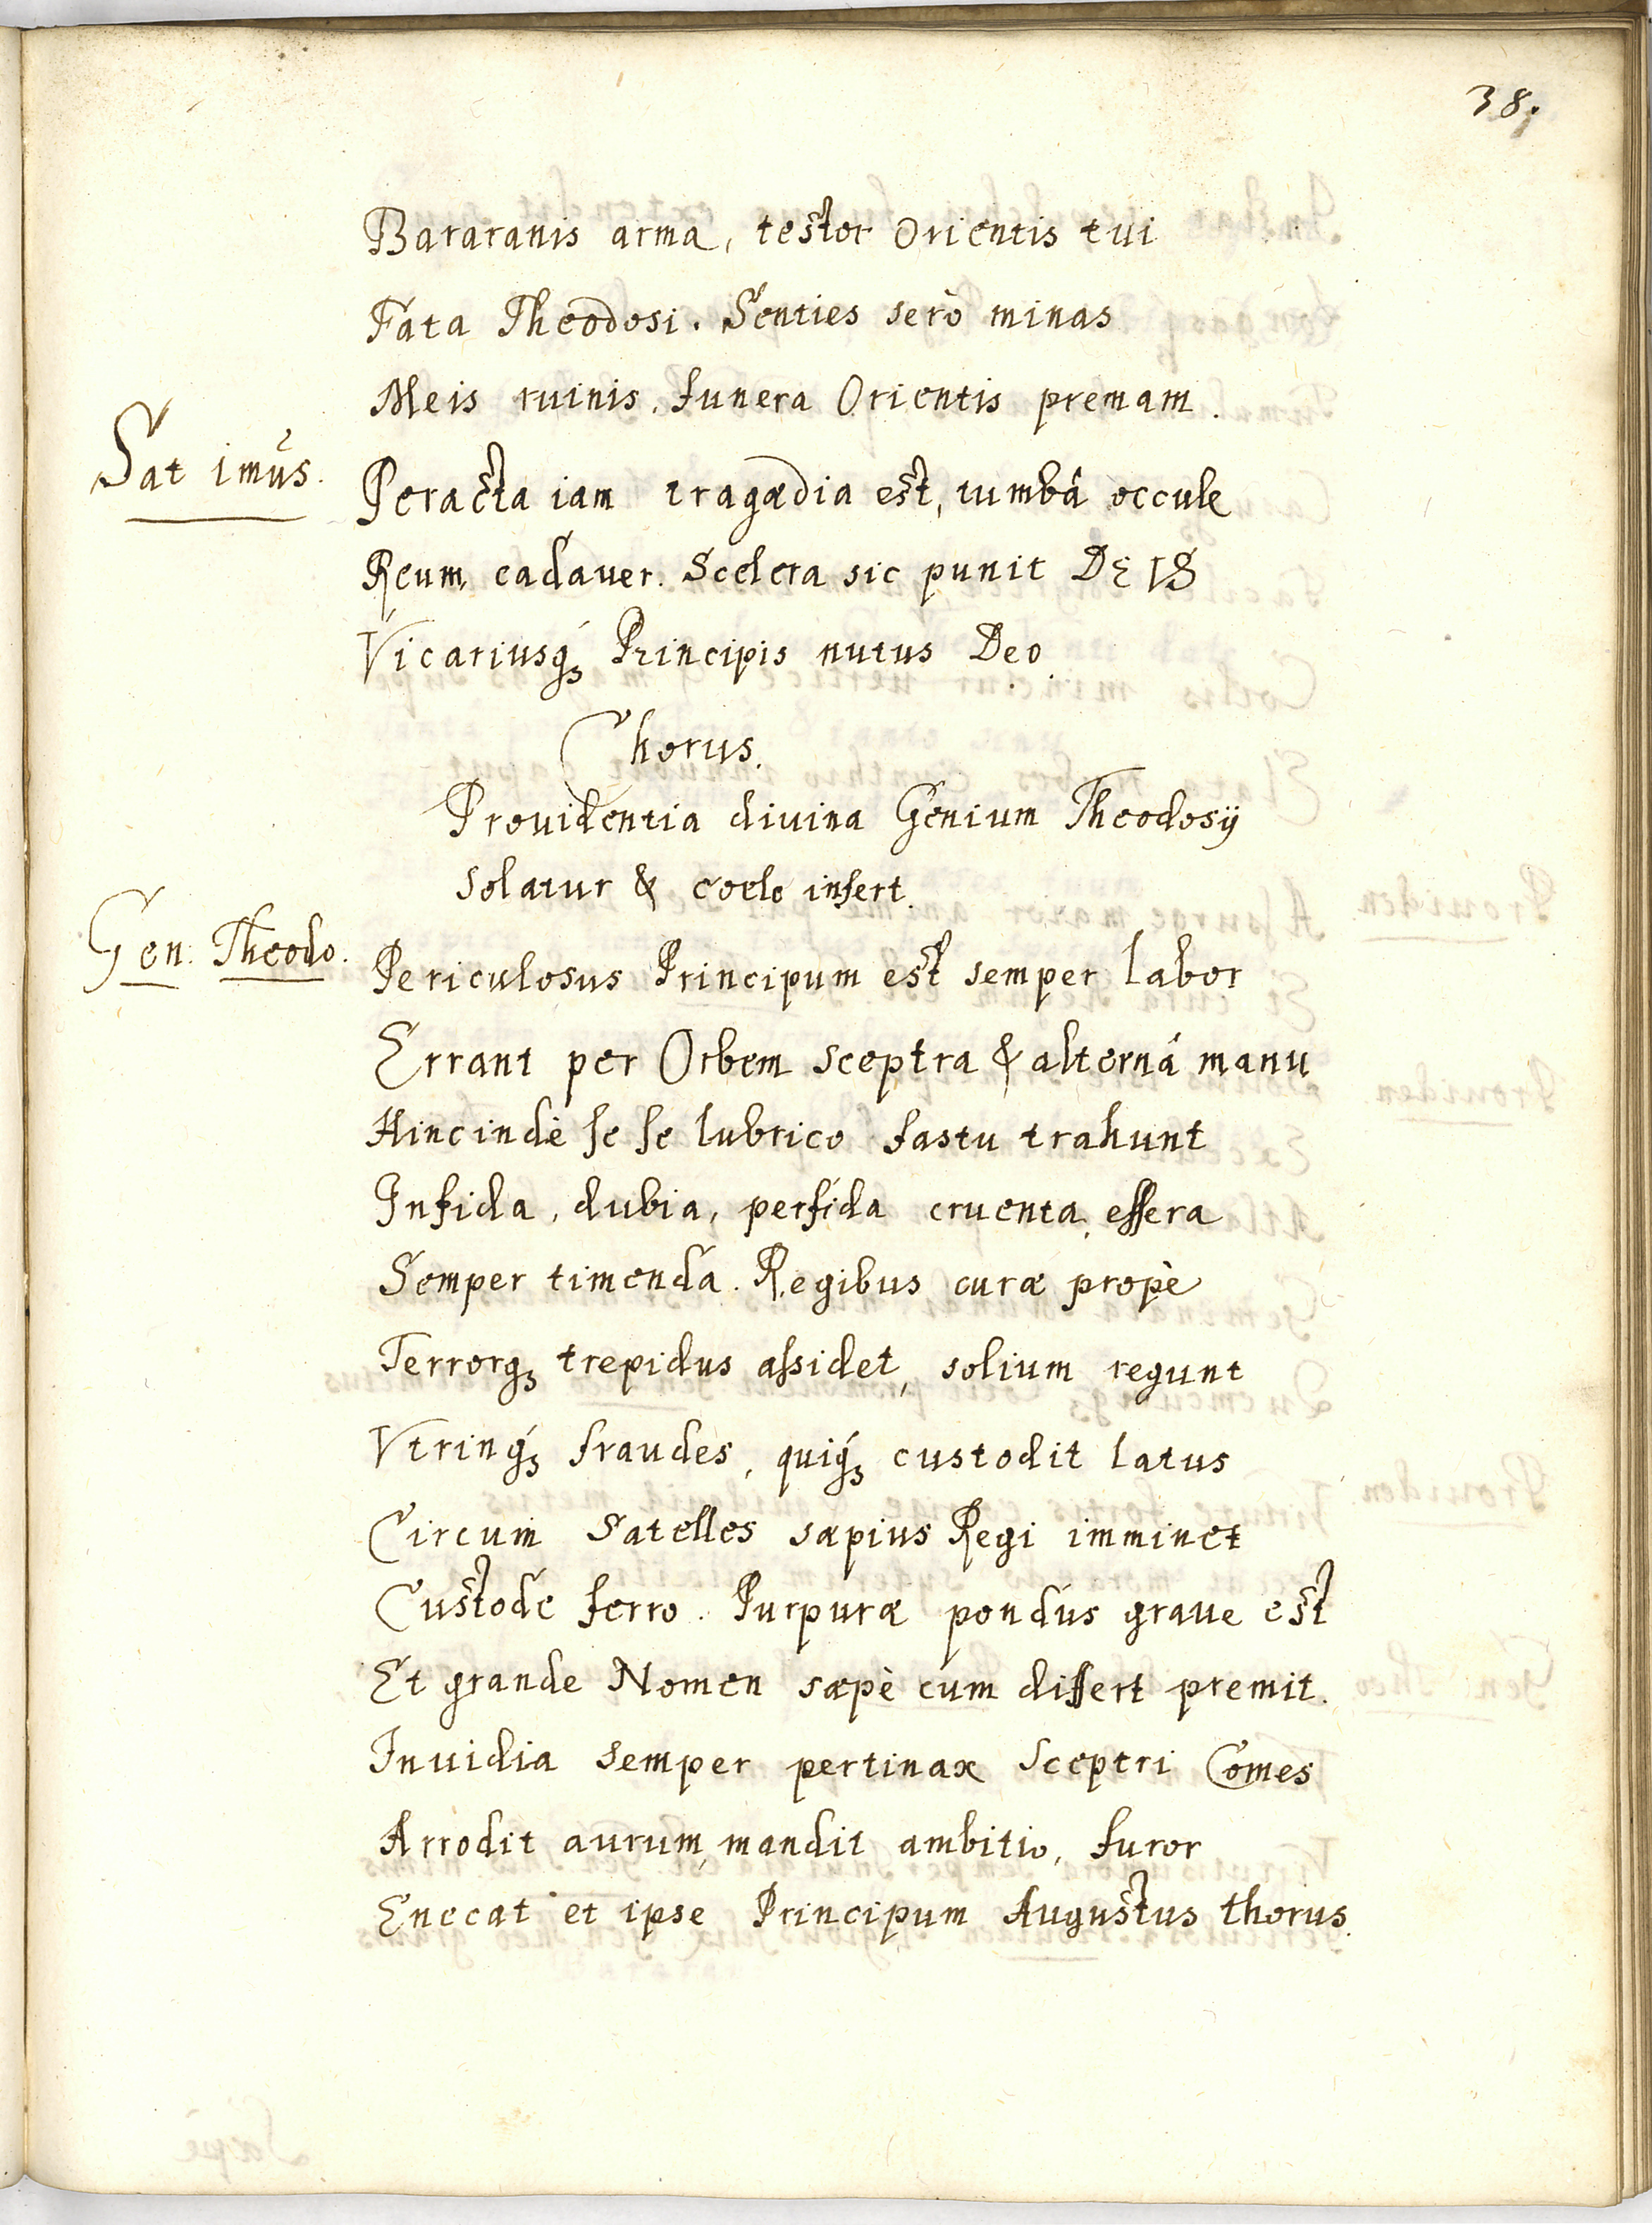 38.
Bararanis arma, testor Orientis tui
Fata Theodosi. Senties serò minas
Meis ruinis. funera Orientis premam.
Sat imus. Peracta iam tragædia est, tumbâ occule
Reum cadauer. Scelera sic punit DEUS
Vicariusq; Principis nutus Deo.
Chorus.
Prouidentia diuina Genium Theodosij
solatur & coelo infert.
Gen: Theodo. Periculosus Principum est semper labor
Errant per Orbem sceptra & alternâ manu
Hincindè se se lubrico fastu trahunt
Infida, dubia, perfida cruenta, effera
Semper timenda. Regibus curæ propè
Terrorq; trepidus assidet, solium regunt
Vtrinq; fraudes, quiq; custodit latus
Circum Satelles sæpius Regi imminet
Custode ferro. Purpuræ pondus graue est
Et grande Nomen sæpè cum differt premit.
Inuidia semper pertinax sceptri Comes
Arrodit aurum, mandit ambitio, furor
Enecat et ipse Principum Augustus thorus.